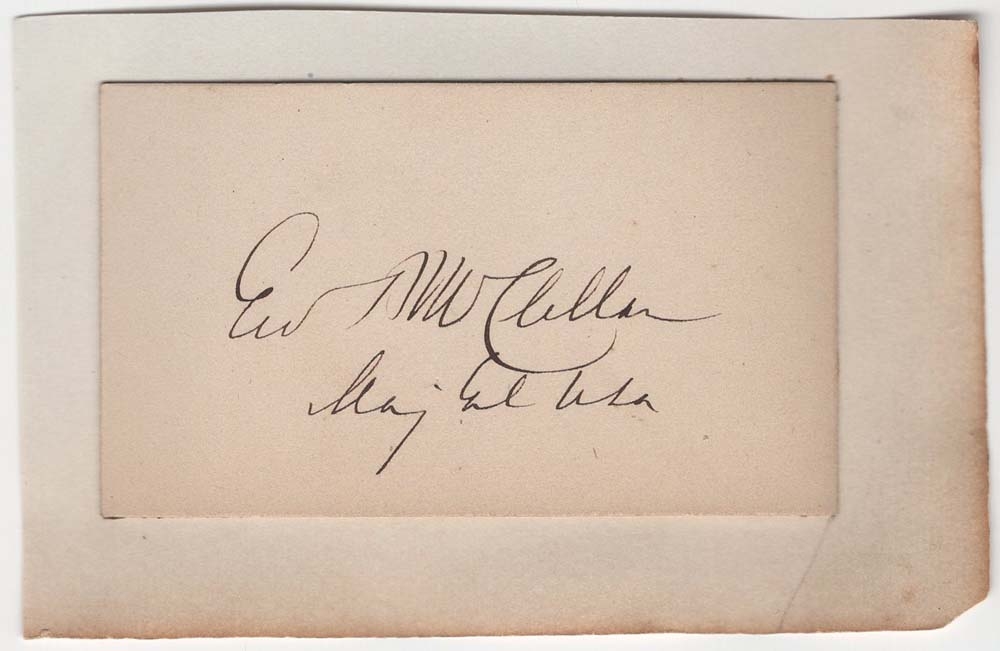 Geo B McClellan
Maj Gel USA